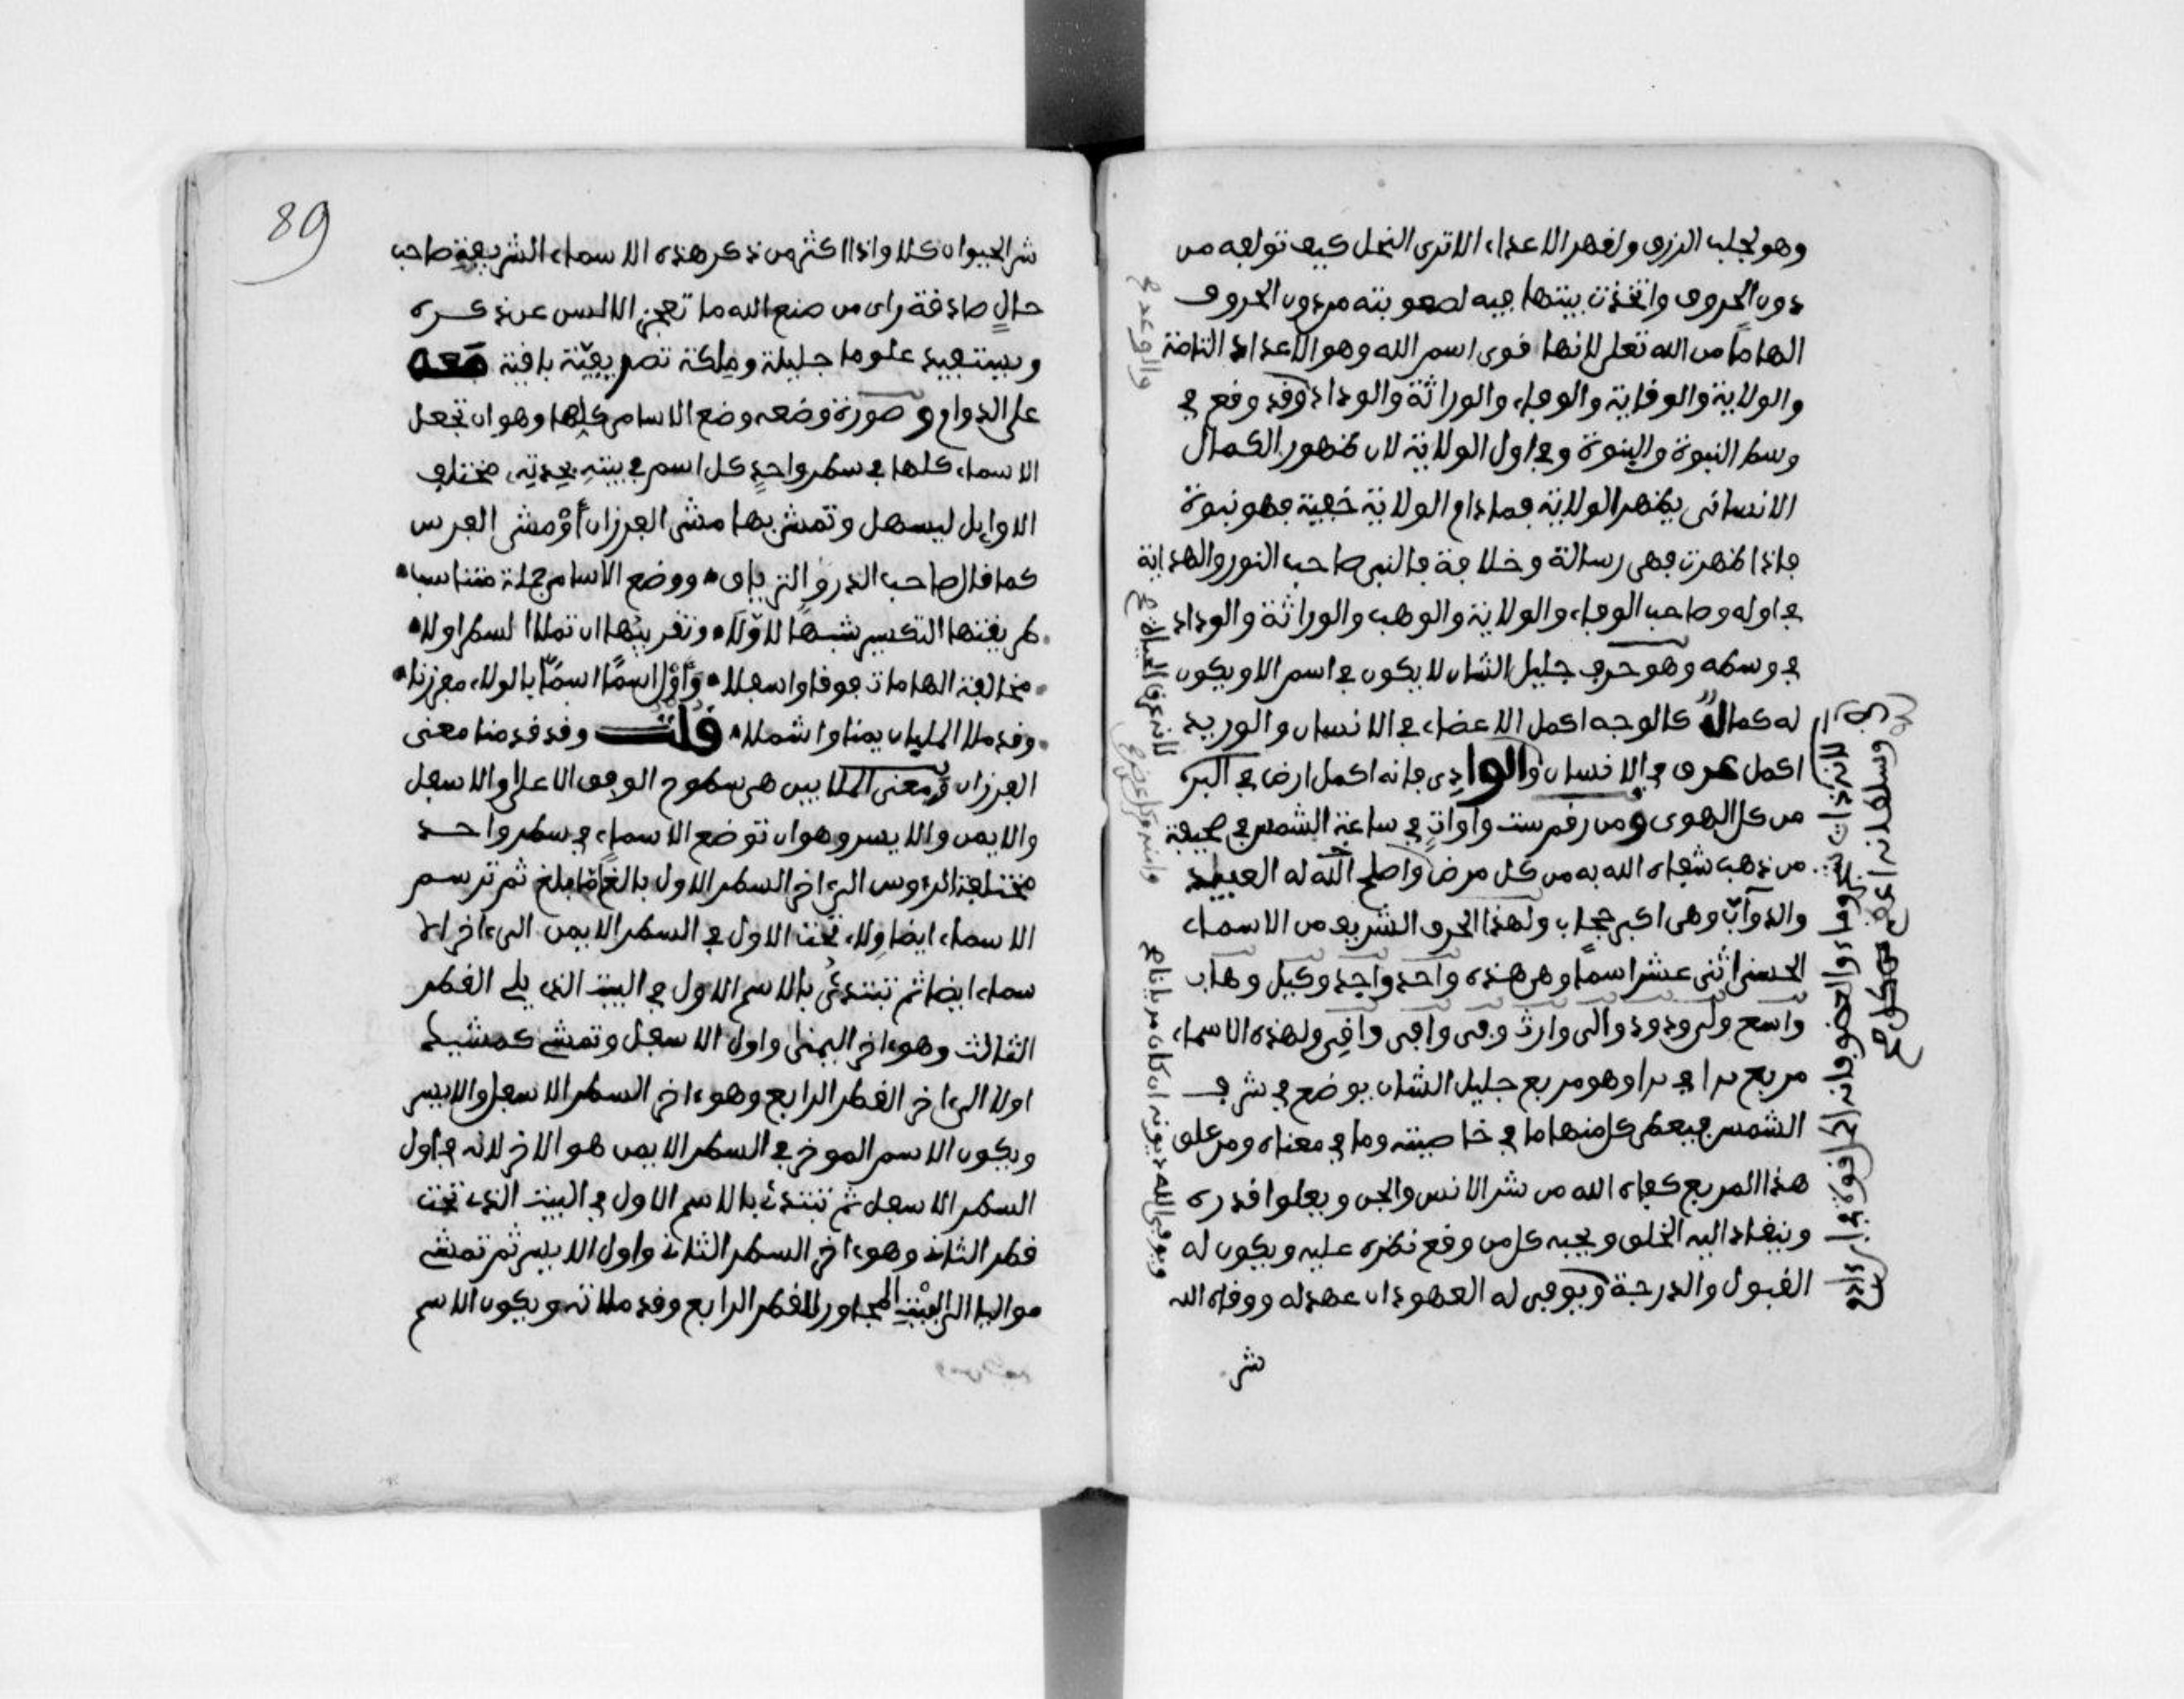 وهو لجلب الرزق ولقهر الاعداء الا ترى النحل كيف تولعه من
دون الحروف واتخذت بيتها فيه لصعوبته من دون الحروف
الهاما من الله تعلى لانها قوى اسم الله وهو الاعداد التامة
والولاية والوقاية والوفاء والوراثة والوداد وقد وقع في
وسط النبوة والبنوة وفي اول الولاية لان ظهور الكمال
الانسانى يظهر الولاية فمادام الولاية خفية فهو نبوة
فاذا ظهرت فهى رسالة وخلافة فالنبى صاحب النور والهداية
في اوله وصاحب الوفاء والولاية والوهب والوراثة والوداد
في وسطه وهو حرف جليل الشان لا يكون في اسم الا ويكون
له كمال كالوجه اكمل الاعضاء في الانسان والوريد
اكمل عرق في الانسان والوادى فانه اكمل ارض في البر
من كل الهوى ومن رقم ست واوات في ساعة الشمس في صحيفة
من ذهب شفاه الله به من كل مرض واصلح الله له العبيد
والدواب وهى اكبر حجاب ولهذا الحرف الشريف من الاسماء
الحسنى اثنى عشر اسما وهى هذه واحد واجد وكيل وهاب
واسع ولى ودود والى وارث وفى وافى واقى ولهذه الاسماء
مربع في وهو مربع جليل الشان يوضع في شرف
الشمس فيعطى كل منها ما في خاصيته وما في معناه ومن علق
هذا المربع كفاه الله من شر الانس والجن ويعلوا قدره
وينقاد اليه الخلق ويحبه كل من وقع نظره عليه ويكون له
القبول والدرجة ويوفى له العهود ان عهد له ووقاه الله
شر
89
شر الحيوان كلا واذا اكثر من ذكر هذه الاسماء الشريفة صاحب
حال صادقة راى من صنع الله ما تعجز الالسن عن ذكره
ويستفيد علوما جليلة وملكة تصريفية باقية معه
على الدوام وصورة وضعه وضع الاسامى كلها وهو ان تجعل
الاسماء كلها في سطر واحد كل اسم في بيته بحدته مختلف
الاوايل ليسهل وتمشى بها مشى الفرزان او مشى الفرس
كما قال صاحب الدر والترياق ووضع الاسامى جملة متناسبا
طريقتها التكسير شبها للاولا وتقريبها ان تملا السطر اولا
مخالفة الهامات فوقا واسفلا وأول اسما اسما بالولاء مفرزنا
وقد ملا المليان يمنا واشملا قلت وقد قدمنا معنى
الفرزان ومعنى الملايين هى سطوح الوفق الاعلى والاسفل
والايمن والايسر وهو ان توضع الاسماء في سطر واحد
مختلفة الرءوس الى اخر السطر الاول بالغا ما بلغ ثم ترسم
الاسماء ايضا ولاء تحت الاول في السطر الايمن الى اخر الا
سماء ايضا ثم تبتدئ بالاسم الاول في البيت الذى يلى القطر
الثالث وهو اخر اليمنى واول الاسفل وتمشى كمشيك
اولا الى اخر القطر الرابع وهو اخر السطر الاسفل والايسر
ويكون الاسم الموخر في السطر الايمن هو الاخر لانه في اول
السطر الاسفل ثم تبتدئ بالاسم الاول في البيت الذى تحت
قطر الثانى وهو اخر السطر الثانى واول الايسر ثم تمشى
مواليا الى البيت المجاور للقطر الرابع وقد ملاته ويكون الاسم